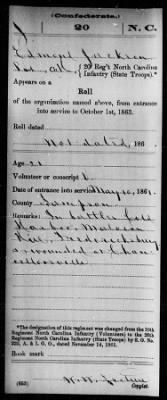 (Confederate.)
J 20 N. C.
Edmond Jackson
Co. , 20 Reg't North Carolina
Infantry (State Troops).*
Appears on a
Roll
of the organization named above, from entrance
into service to October 1st, 1863.
Roll dated
Not dated, 186
Age 21
Volunteer or conscript V.
Date of entrance into service May 10, 1861.
County Sampson
Remarks: In battles Cold
Harbor, Malvern
Hill, Fredericksburg
wounded at Chan-
cellorsville
*The designation of this regiment was changed from the 10th
Regiment North Carolina Infantry (Volunteers) to the 20th
Regiment North Carolina Infantry (State Troops) by S. O. No.
222, A. & I. G. O., dated November 14, 1861.
Book mark:
(650) Copyist.